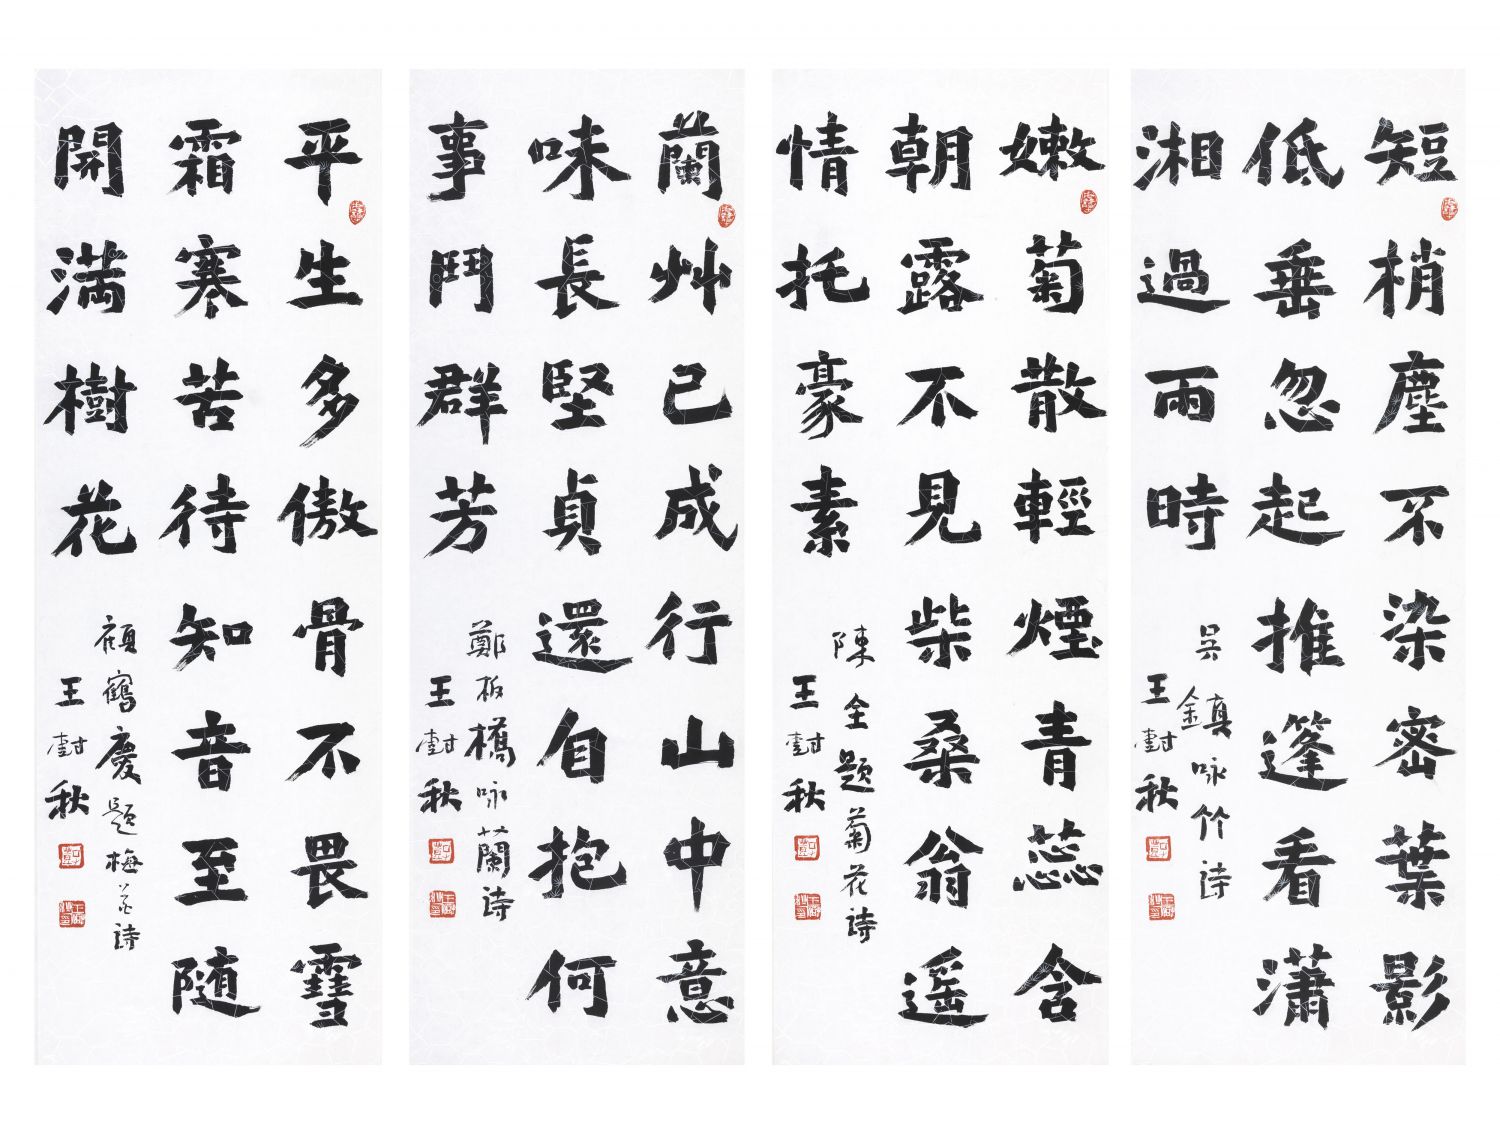 短梢塵不染密葉影
低垂忽起推篷看瀟
湘過雨時
吴鎮咏竹诗
王尌秋
嫩菊散輕煙青蕊含
朝露不見柴桑翁遥
情托豪素
陳全题菊花诗
王尌秋
蘭艸已成行山中意
味長堅貞還自抱何
事鬥群芳
鄭板橋咏蘭诗
王尌秋
平生多傲骨不畏雪
霜寒苦待知音至随
開満樹花
顾鶴慶题梅花诗
王尌秋